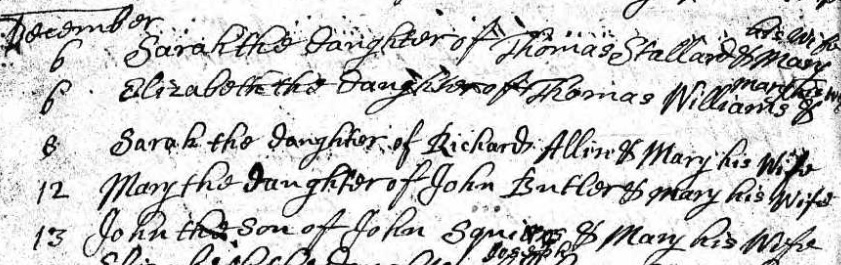 December
his Wife
6 Sarah the daughter of Thomas Stallard & Mary
Mary his Wife
6 Elizabeth the daughter of Thomas Williams &
8 Sarah the daughter of Richard Allin & Mary his Wife
12 Mary the daughter of John Butler & Mary his Wife
13 John the Son of John Squires & Mary his Wife
Joseph